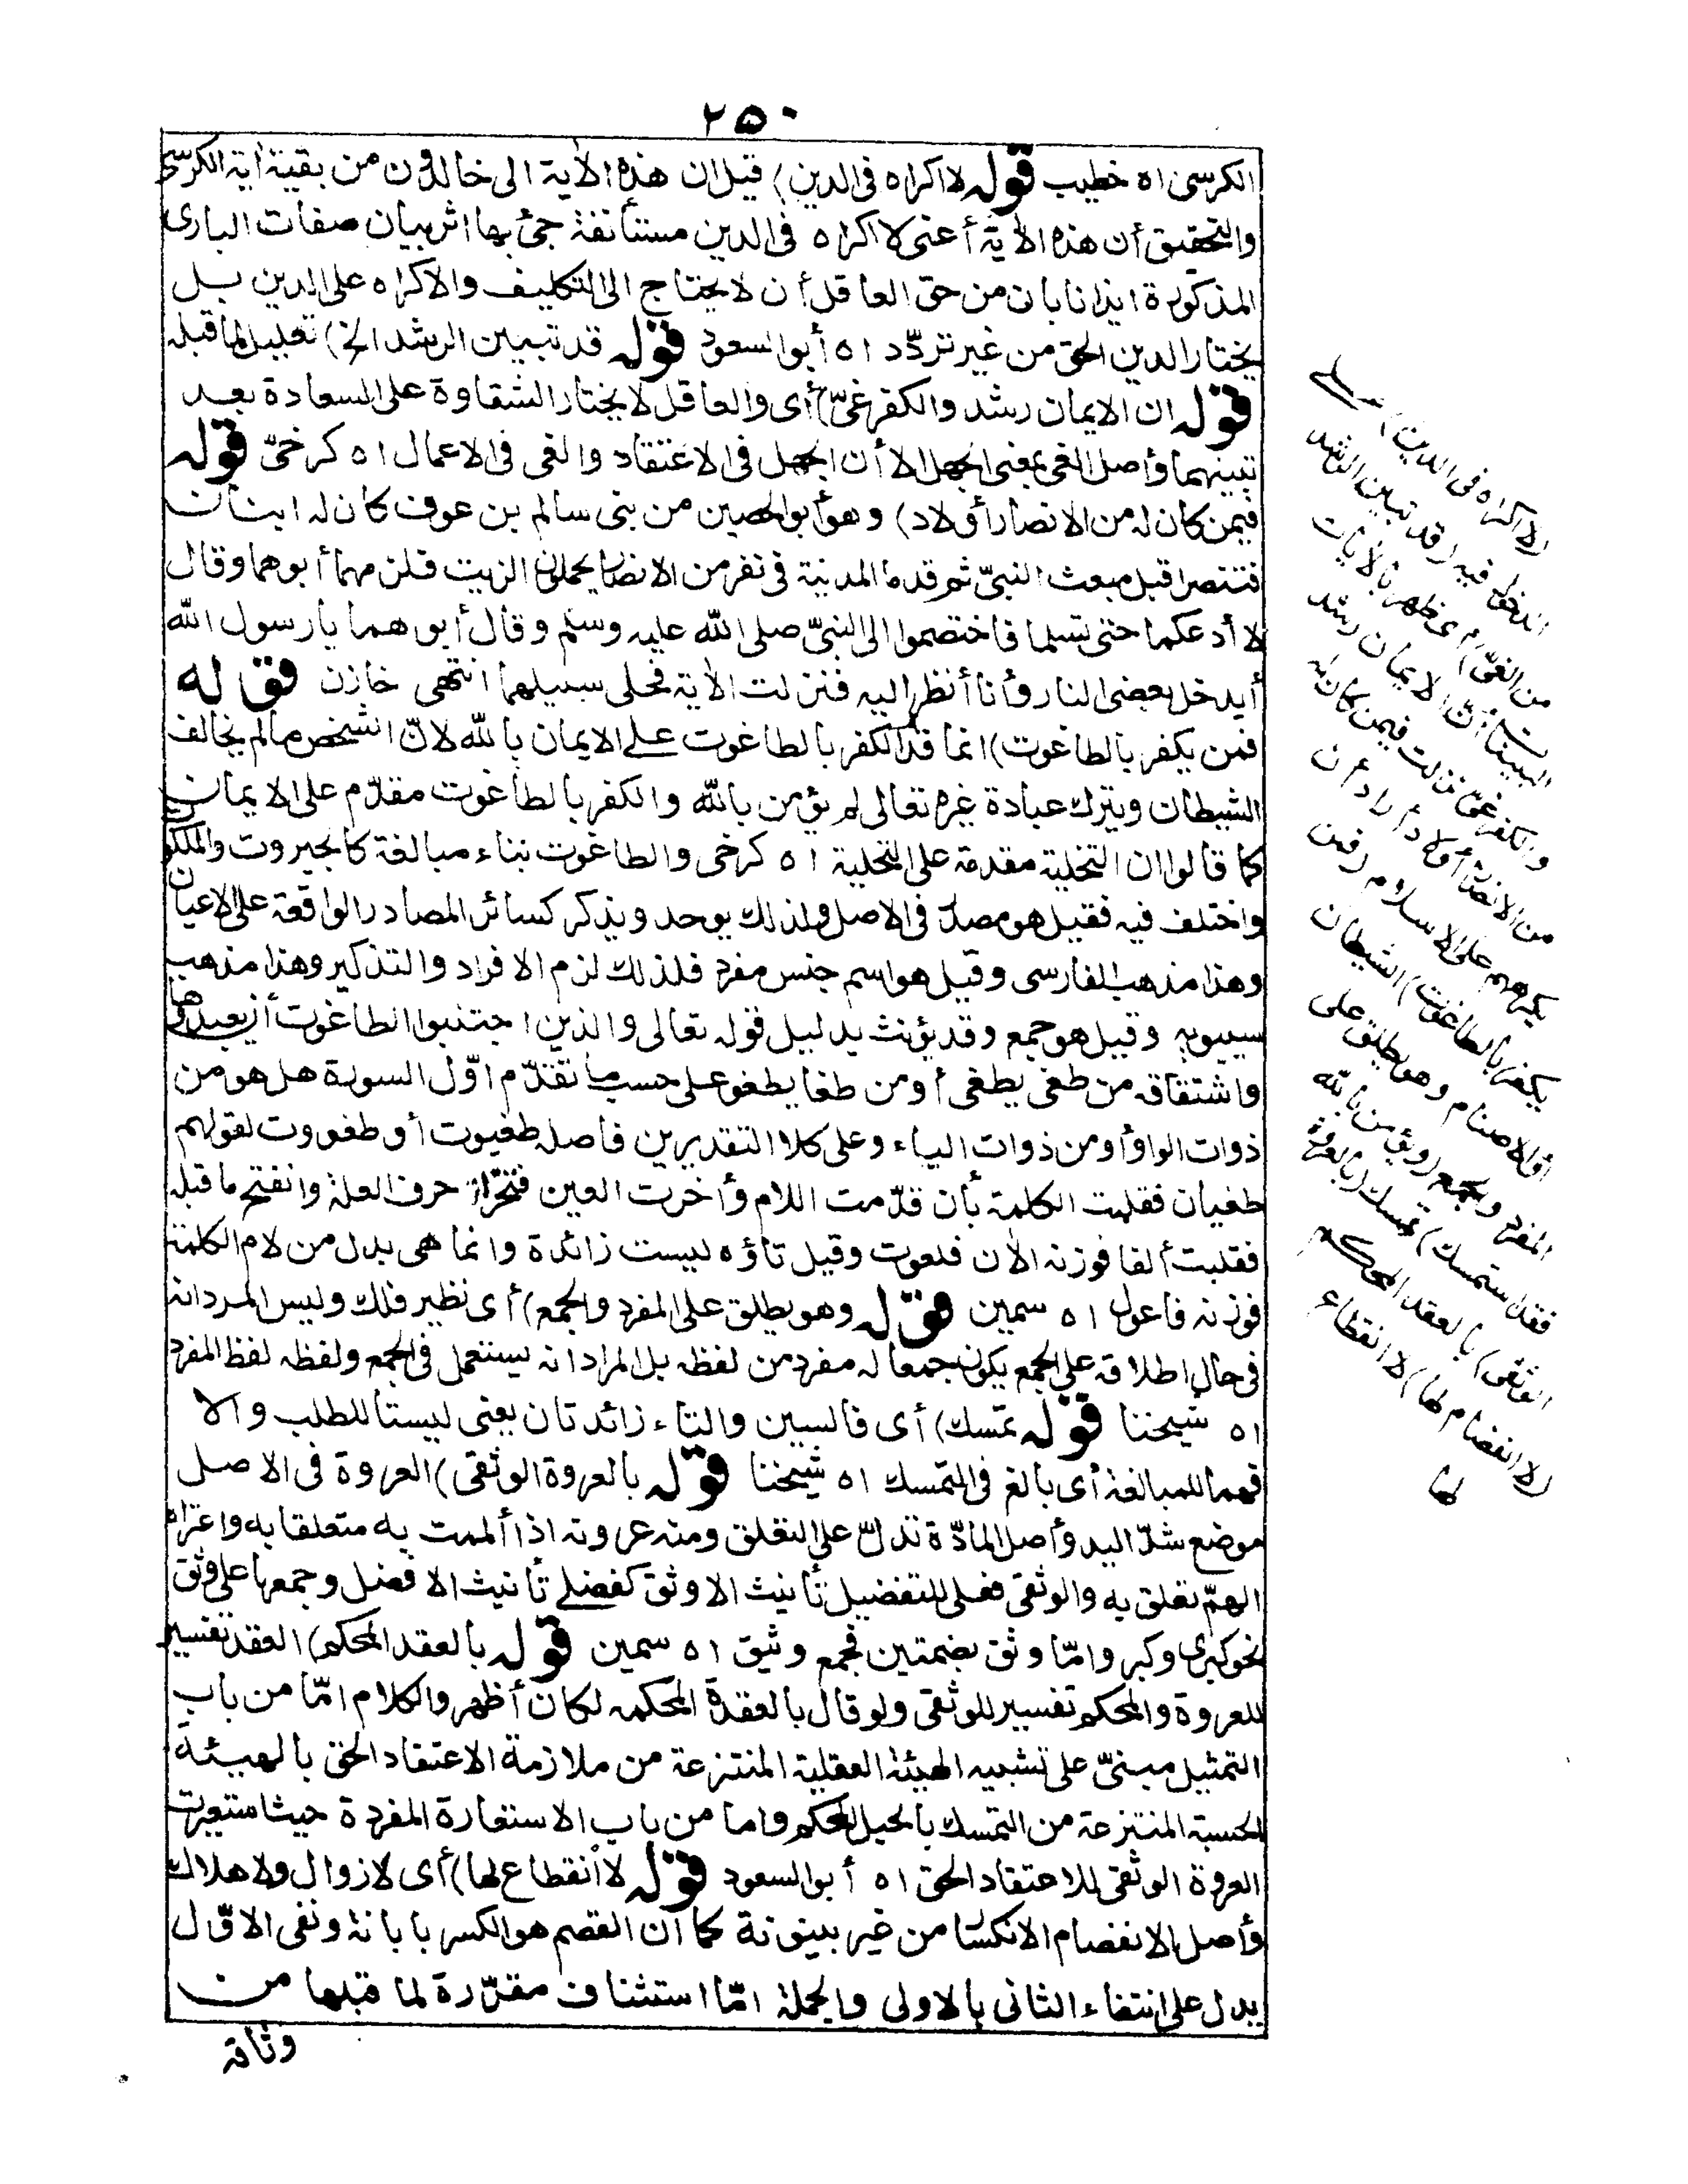 ٢٥٠
الكرسى اه خطيب قوله لا اكراه فى الدين) قيل ان هذه الآية الى خالدون من بقية آية الكرسى
والتحقيق أن هذه الآية أعنى لا اكراه فى الدين مستأنفة جئ بها اثر بيان صفات البارى
المذكورة ايذانا بان من حق العاقل أن لا يحتاج الى التكليف والاكراه على الدين بل
يختار الدين الحق من غير تردّد اه أبو السعود قوله قد تبين الرشد الخ) تعليل لما قبله
قوله ان الايمان رشد والكفر غىّ) أى والعاقل لا يختار الشقاوة على السعادة بعد
تبينهما وأصل الغى بمعنى الجهل الا أن الجهل فى الاعتقاد والغى فى الاعمال اه كرخىّ قوله
فيمن كان له من الانصار أولاد) وهو أبو الحصين من بنى سالم بن عوف كان له ابنان
فتنصرا قبل مبعث النبىّ ثم قدما المدينة فى نفر من الانصار يحملون الزيت فلزمهما أبوهما وقال
لا أدعكما حتى تسلما فاختصموا الى النبىّ صلى الله عليه وسلم وقال أبوهما يا رسول الله
أيدخل بعضى النار وأنا أنظر اليه فنزلت الآية فخلى سبيلهما انتهى خازن قوله
فمن يكفر بالطاغوت) انما قدّم الكفر بالطاغوت على الايمان بالله لانّ الشخص ما لم يخالف
الشيطان ويترك عبادة غيره تعالى لم يؤمن بالله والكفر بالطاغوت مقدّم على الايمان
كما قالوا ان التخلية مقدمة على التحلية اه كرخى والطاغوت بناء مبالغة كالجبروت والملكوت
واختلف فيه فقيل هو مصدر فى الاصل ولذلك يوحد ويذكر كسائر المصادر الواقعة على الاعيان
وهذا مذهب الفارسى وقيل هو اسم جنس مفرد فلذلك لزم الافراد والتذكير وهذا مذهب
سيبويه وقيل هو جمع وقد يؤنث بدليل قوله تعالى والذين اجتنبوا الطاغوت أن يعبدوها
واشتقاقه من طغى يطغى أو من طغا يطغو على حسب ما تقدّم اوّل السورة هل هو من
ذوات الواو أو من ذوات الياء وعلى كلا التقديرين فاصله طغيوت أو طغووت لقولهم
طغيان فقلبت الكلمة بأن قدّمت اللام وأخرت العين فتحرّك حرف العلة وانفتح ما قبله
فقلبت ألفا فوزنه الآن فلعوت وقيل تاؤه ليست زائدة وانما هى بدل من لام الكلمة
فوزنه فاعول اه سمين قوله وهو يطلق على المفرد والجمع) أى نظير فلك وليس المراد انه
فى حال اطلاقه على الجمع يكون جمعا له مفرد من لفظه بل المراد انه يستعمل فى الجمع ولفظه لفظ المفرد
اه شيخنا قوله تمسك) أى فالسين والتاء زائدتان يعنى ليستا للطلب والا
فهما للمبالغة أى بالغ فى التمسك اه شيخنا قوله بالعروة الوثقى) العروة فى الاصل
موضع شدّ اليد وأصل المادّة تدلّ على التعلق ومنه عروته اذا ألممت به متعلقا به واعتراه
الهمّ تعلق به والوثقى فعلى للتفضيل تأنيث الاوثق كفضلى تأنيث الافضل وجمعها على وثق
نحو كبرى وكبر وامّا وثق بضمتين فجمع وثيق اه سمين قوله بالعقد المحكم) العقد تفسير
للعروة والمحكم تفسير للوثقى ولو قال بالعقدة المحكمه لكان أظهر والكلام امّا من باب
التمثيل مبنىّ على تشبيه الهيئة العقلية المنتزعة من ملازمة الاعتقاد الحق بالهيئة
الحسية المنتزعة من التمسك بالحبل المحكم واما من باب الاستعارة المفردة حيث استعيرت
العروة الوثقى للاعتقاد الحق اه أبو السعود قوله لا انقطاع لها) أى لا زوال ولا هلاك
وأصل الانفصام الانكسار من غير بينونة كما أن القصم هو الكسر بابانة ونفى الاوّل
يدل على انتفاء الثانى بالاولى والجملة امّا استئناف مقرّرة لما قبلها من
وثاقة
(لا اكراه فى الدين) على
الدخول فيه (قد تبين الرشد
من الغىّ) أى ظهر بالآيات
البينات أن الايمان رشد
والكفر غىّ نزلت فيمن كان له
من الانصار أولاد أراد أن
يكرههم على الاسلام (فمن
يكفر بالطاغوت) الشيطان
أو الاصنام وهو يطلق على
المفرد والجمع (ويؤمن بالله
فقد استمسك) تمسك (بالعروة
الوثقى) بالعقد المحكم
(لا انفصام لها) لا انقطاع
لها